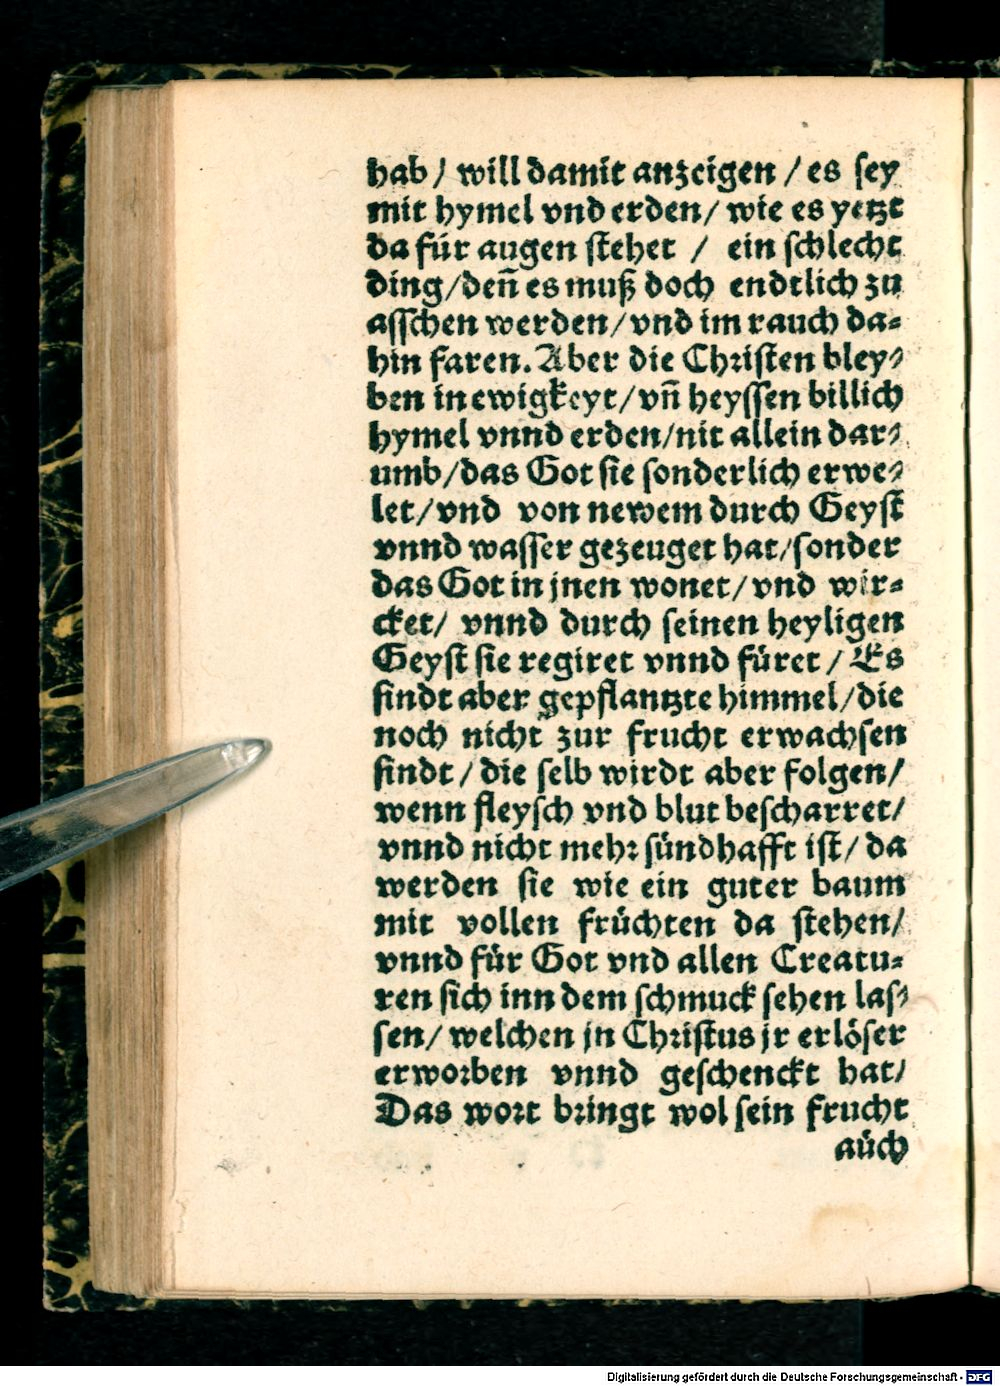 hab / will damit anzeigen / es sey
mit hymel vnd erden / wie es yetzt
da für augen stehet / ein schlecht
ding / deñ es muß doch endtlich zu
asschen werden / vnd im rauch da⸗
hin faren. Aber die Christen bley⸗
ben in ewigkeyt / vñ heyssen billich
hymel vnnd erden / nit allein dar⸗
umb / das Got sie sonderlich erwe⸗
let / vnd von newem durch Geyst
vnnd wasser gezeuget hat / sonder
das Got in jnen wonet / vnd wir⸗
cket / vnnd durch seinen heyligen
Geyst sie regiret vnnd füret / Es
sindt aber gepflantzte himmel / die
noch nicht zur frucht erwachsen
sindt / die selb wirdt aber folgen /
wenn fleysch vnd blut bescharret /
vnnd nicht mehr sündhafft ist / da
werden sie wie ein guter baum
mit vollen früchten da stehen /
vnnd für Got vnd allen Creatu⸗
ren sich inn dem schmuck sehen las⸗
sen / welchen jn Christus jr erlöser
erworben vnnd geschenckt hat /
Das wort bringt wol sein frucht
aüch
Digitalisierung gefördert durch die Deutsche Forschungsgemeinschaft - DFG